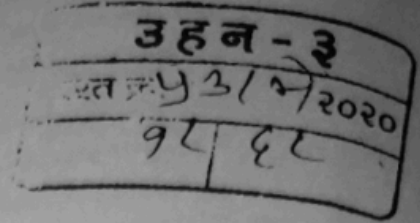 उहन - ३
दस्त क्र. ५३१ २०२०
१८ ६८